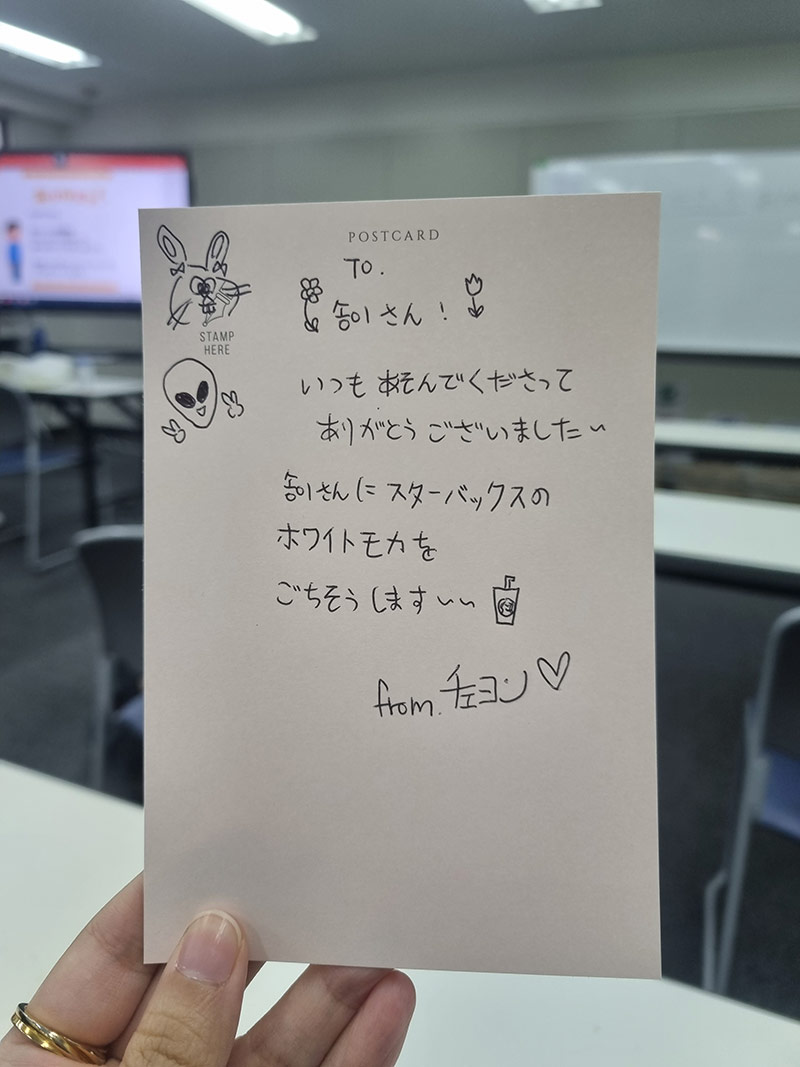 POSTCARD
TO.
さん！
STAMP
HERE
いつも あそんでくださって
ありがとう ございました〜
さんに スターバックスの
ホワイトモカを
ごちそうします〜〜
from. チェヨン♡